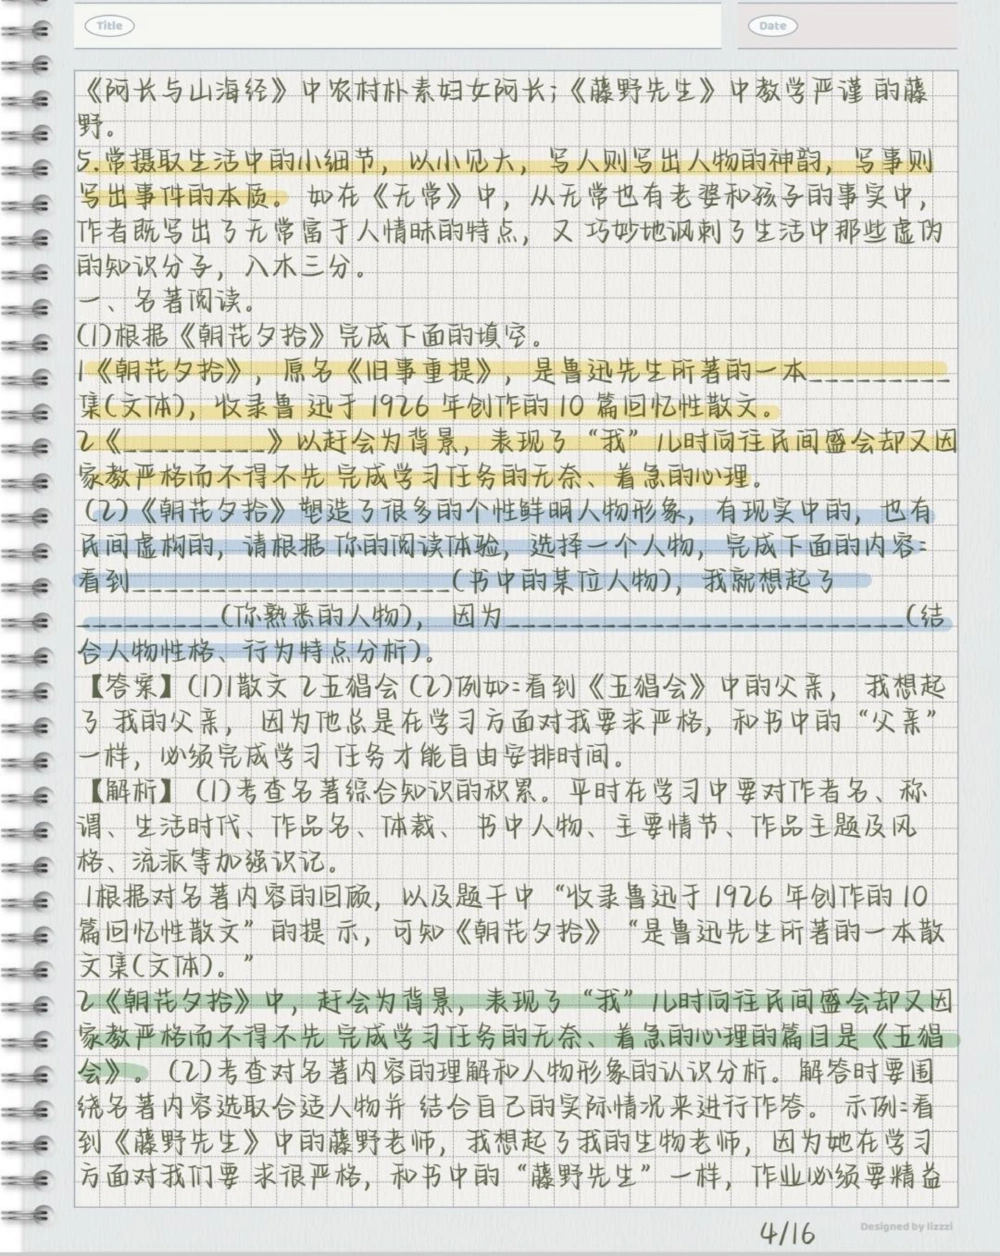 Title
Date
《阿长与山海经》中农村朴素妇女阿长；《藤野先生》中教学严谨 的藤
野。
5.常摄取生活中的小细节，以小见大，写人则写出人物的神韵，写事则
写出事件的本质。 如在《无常》中，从无常也有老婆和孩子的事实中，
作者既写出了无常富于人情昧的特点，又 巧妙地讽刺了生活中那些虚伪
的知识分子，入木三分。
一、名著阅读。
(1)根据《朝花夕拾》完成下面的填空。
1《朝花夕拾》，原名《旧事重提》，是鲁迅先生所著的一本_________
集(文体)，收录鲁 迅于 1926 年创作的 10 篇回忆性散文。
2《_________》以赶会为背景，表现了“我”儿时向往民间盛会却又因
家教严格而不得不先 完成学习任务的无奈、着急的心理。
(2)《朝花夕拾》塑造了很多的个性鲜明人物形象，有现实中的，也有
民间虚构的，请根据 你的阅读体验，选择一个人物，完成下面的内容：
看到____________________(书中的某位人物)，我就想起了
_________(你熟悉的人物)， 因为_________________________(结
合人物性格、行为特点分析)。
【答案】(1)1散文 2五猖会 (2)例如：看到《五猖会》中的父亲， 我想起
了 我的父亲， 因为他总是在学习方面对我要求严格，和书中的“父亲”
一样，必须完成学习 任务才能自由安排时间。
【解析】 (1)考查名著综合知识的积累。平时在学习中要对作者名、称
谓、生活时代、作品名、体裁、 书中人物、主要情节、作品主题及风
格、流派等加强识记。
1根据对名著内容的回顾，以及题干中“收录鲁迅于 1926 年创作的 10
篇回忆性散文”的提 示，可知《朝花夕拾》“是鲁迅先生所著的一本散
文集(文体)。”
2《朝花夕拾》中，赶会为背景，表现了“我”儿时向往民间盛会却又因
家教严格而不得不先 完成学习任务的无奈、着急的心理的篇目是《五猖
会》。 (2)考查对名著内容的理解和人物形象的认识分析。解答时要围
绕名著内容选取合适人物并 结合自己的实际情况来进行作答。 示例：看
到《藤野先生》中的藤野老师，我想起了我的生物老师，因为她在学习
方面对我们要 求很严格，和书中的“藤野先生”一样，作业必须要精益
4/16
Designed by lizzzi